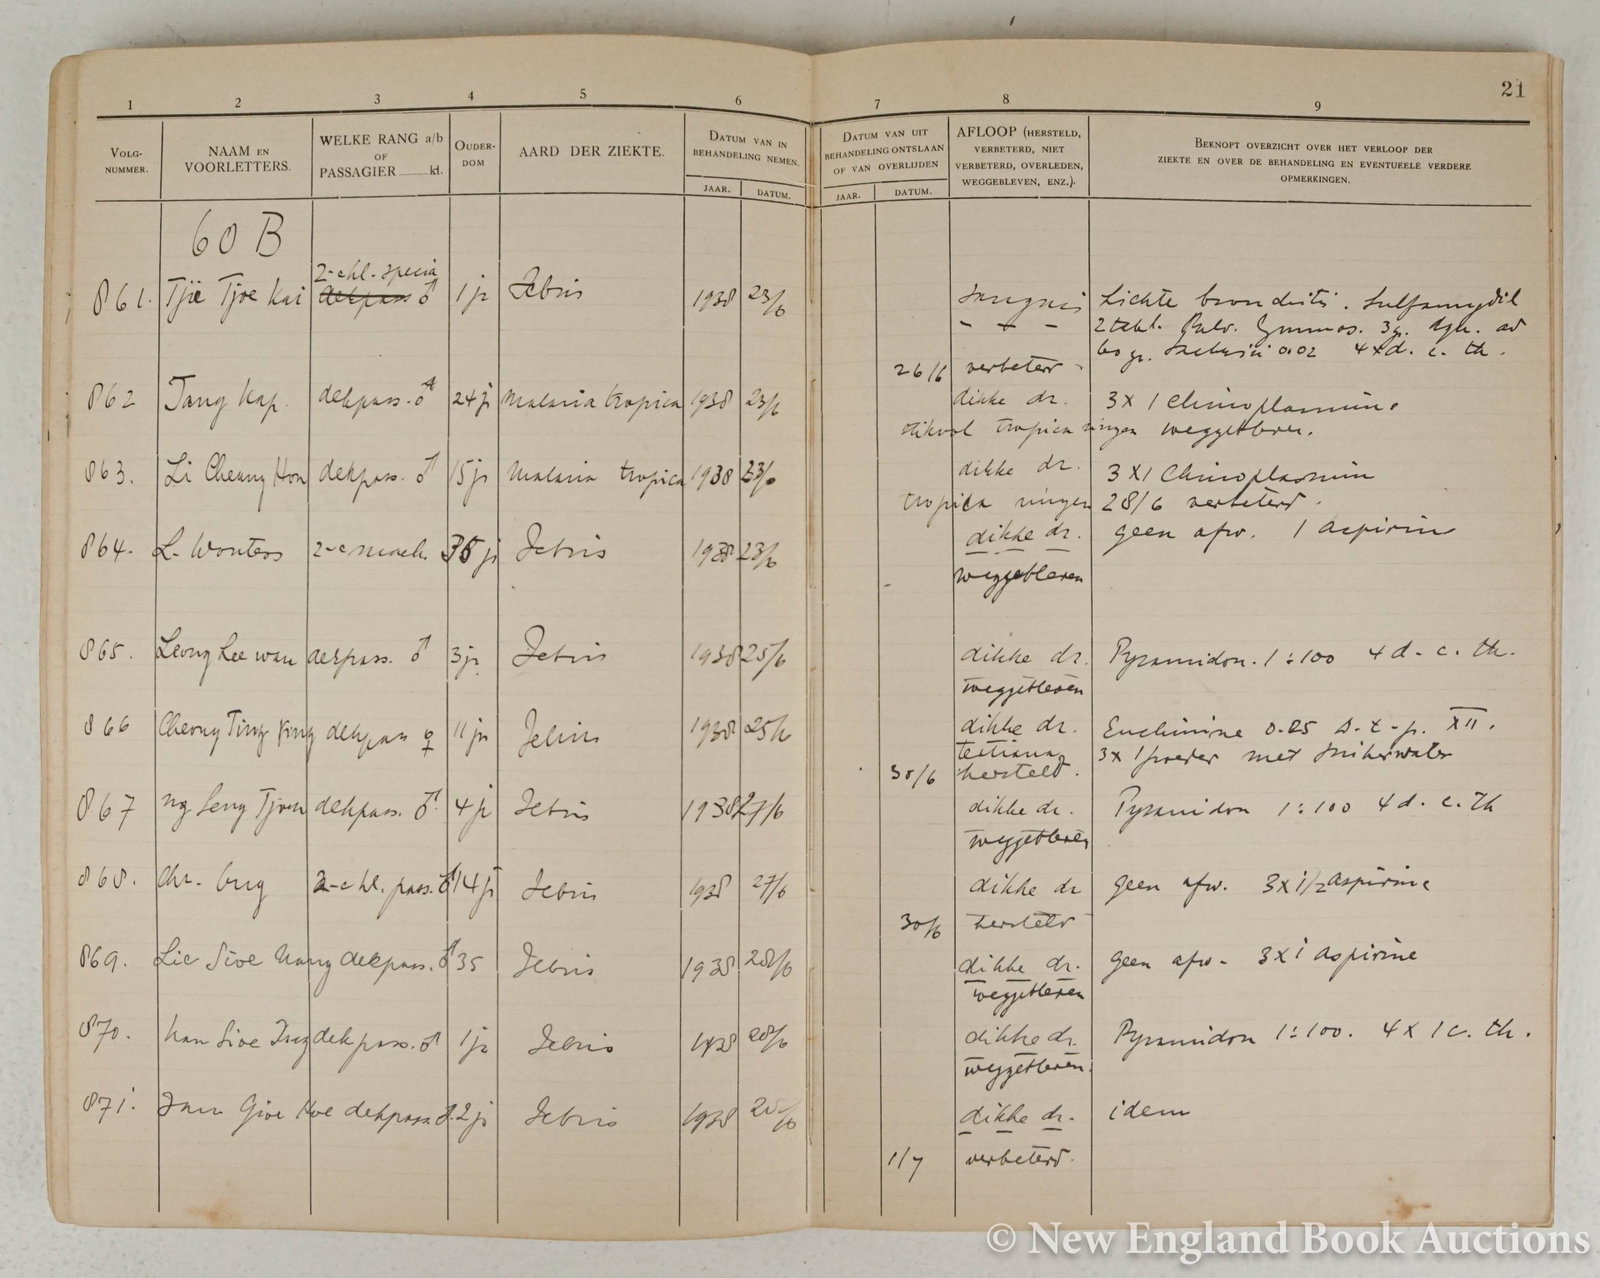 21
1 2 3 4 5 6 7 8 9
VOLG-NUMMER.
NAAM EN VOORLETTERS.
WELKE RANG a/b OF PASSAGIER kl.
OUDER-DOM
AARD DER ZIEKTE.
DATUM VAN IN BEHANDELING NEMEN.
JAAR. DATUM.
DATUM VAN UIT BEHANDELING ONTSLAAN OF VAN OVERLIJDEN
JAAR. DATUM.
AFLOOP (HERSTELD, VERBETERD, NIET VERBETERD, OVERLEDEN, WEGGEBLEVEN, ENZ.).
BEKNOPT OVERZICHT OVER HET VERLOOP DER
ZIEKTE EN OVER DE BEHANDELING EN EVENTUEELE VERDERE
OPMERKINGEN.
60 B
861. Tjie Tjoe Kai dekpass ♂ 1 jr Febris 1938 23/6 Lichte bronchitis.
2 tabl. Pulv. Gummos. 3 gr.
4 x d. c. th.
26/6 verbeterd
862 Tang Kap. dekpass. ♂ 24 jr Malaria tropica 1938 23/6 dikke dr. 3 x 1 Chinoplasmin.
tropica ringen weggebleven.
863. Li Cheung Hon dekpass. ♂ 15 jr Malaria tropica 1938 23/6 dikke dr. 3 x 1 Chinoplasmin
tropica ringen 28/6 verbeterd.
864. L. Wouters 2-e mach. 36 jr Febris 1938 23/6 dikke dr. geen afw. 1 aspirine
weggebleven
865. Leong Lee wan dekpass. ♂ 3 jr Febris 1938 25/6 dikke dr. Pyramidon. 1:100 4 d. c. th.
weggebleven
866 Cheong Ting Ying dekpass ♀ 11 jr Febris 1938 25/6 dikke dr. Euchinine 0.25 d. t. p. XII.
tertiana 3 x 1 poeder met suikerwater
30/6 hersteld.
867 Ng Seng Tjoen dekpass. ♂ 4 jr Febris 1938 27/6 dikke dr. Pyramidon 1:100 4 d. c. th
weggebleven
868. 2-e kl. pass. ♂ 14 jr Febris 1938 27/6 dikke dr geen afw. 3 x 1/2 aspirine
30/6 hersteld
869. Lie Sioe Nang dekpass. ♂ 35 Febris 1938 28/6 dikke dr. geen afw. 3 x 1 aspirine
weggebleven
870. Sioe dekpass. ♂ 1 jr Febris 1938 28/6 dikke dr. Pyramidon 1:100. 4 x 1 c. th.
weggebleven.
871. Gioe Hoe dekpass. 2 jr Febris 1938 28/6 dikke dr. idem
1/7 verbeterd.
© New England Book Auctions